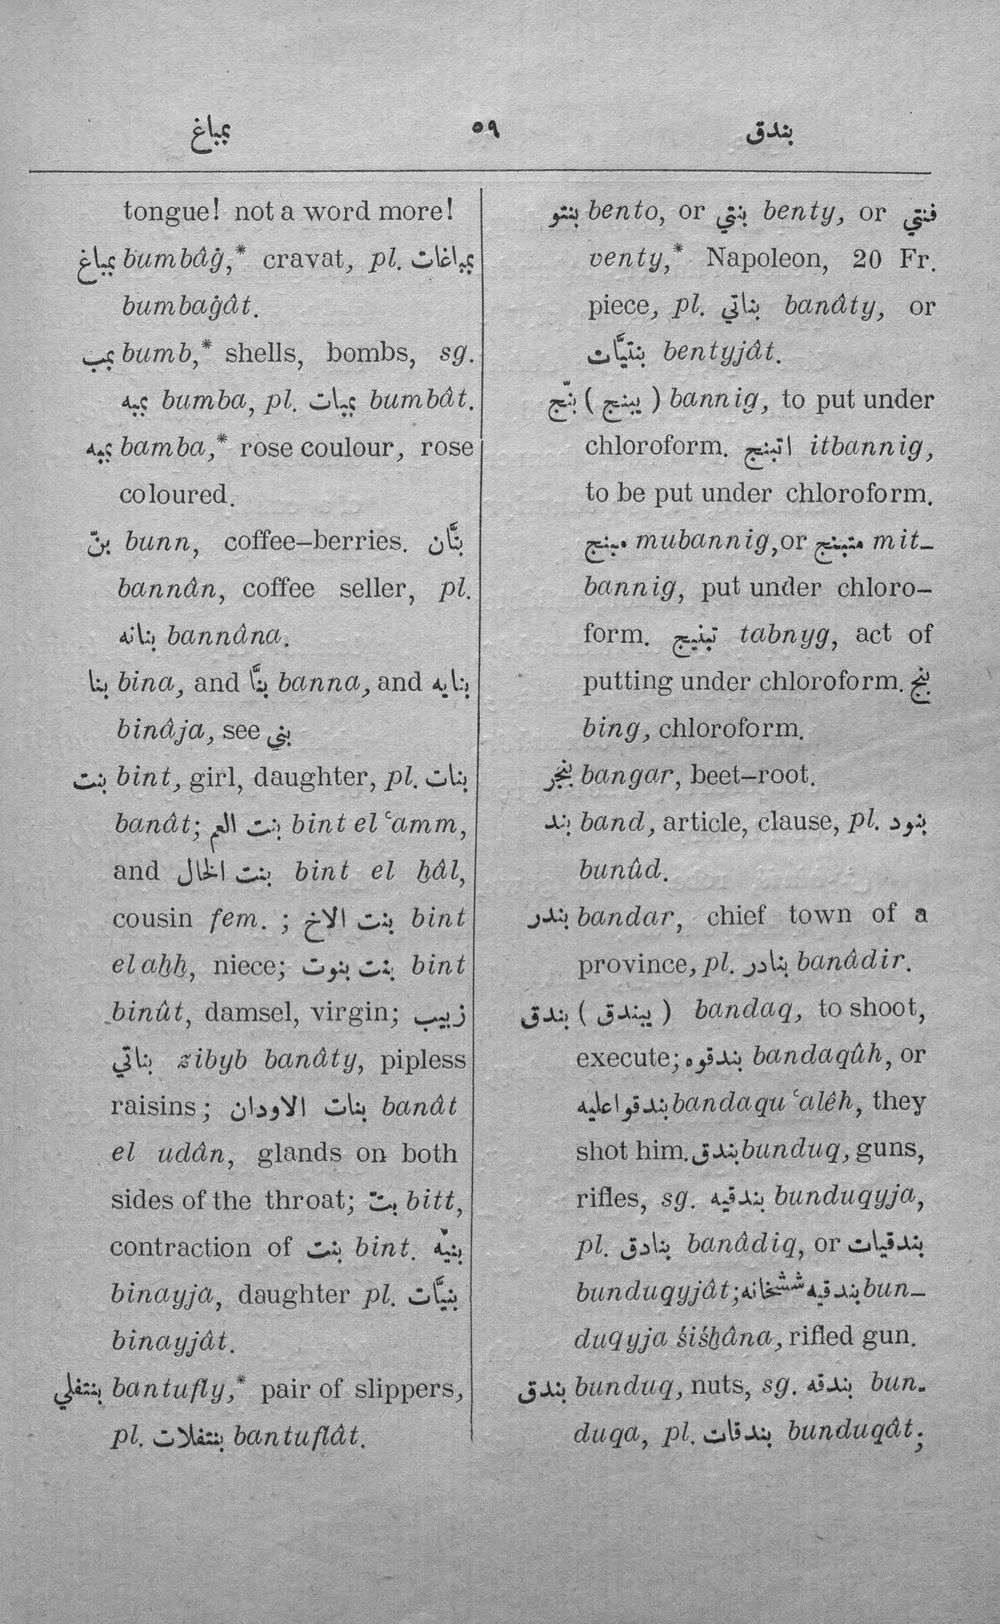 بمباغ ٥٩ بندق
tongue! not a word more!
بمباغ bumbâġ,* cravat, pl. بمباغات
bumbaġât.
بمب bumb,* shells, bombs, sg.
بمبه bumba, pl. بمبات bumbât.
بمبه bamba,* rose coulour, rose
coloured.
بنّ bunn, coffee–berries. بنَّان
bannân, coffee seller, pl.
بنانه bannâna.
بنا bina, and بنَّا banna, and بنايه
binâja, see بني
بنت bint, girl, daughter, pl. بنات
banât; بنت العم bint el ʿamm,
and بنت الخال bint el ḫâl,
cousin fem. ; بنت الاخ bint
el aḫḫ, niece; بنت بنوت bint
binût, damsel, virgin; زبيب
بناتي zibyb banâty, pipless
raisins; بنات الاودان banât
el udân, glands on both
sides of the throat; بتّ bitt,
contraction of بنت bint. بنيّه
binayja, daughter pl. بنيَّات
binayjât.
بنتفلي bantufly,* pair of slippers,
pl. بنتفلات bantuflât.
بنتو bento, or بنتي benty, or فنتي
venty,* Napoleon, 20 Fr.
piece, pl. بناتي banâty, or
بنتيَّات bentyjât.
بنّج ( يبنج ) bannig, to put under
chloroform. اتبنج itbannig,
to be put under chloroform.
مبنج mubannig, or متبنج mit–
bannig, put under chloro–
form. تبنيج tabnyg, act of
putting under chloroform. بنج
bing, chloroform.
بنجر bangar, beet–root.
بند band, article, clause, pl. بنود
bunûd.
بندر bandar, chief town of a
province, pl. بنادر banâdir.
بندق ( يبندق ) bandaq, to shoot,
execute; بندقوه bandaqûh, or
بندقوا عليه bandaqu ʿalêh, they
shot him. بندق bunduq, guns,
rifles, sg. بندقيه bunduqyja,
pl. بنادق banâdiq, or بندقيات
bunduqyjât; بندقيه ششخانه bun–
duqyja śiśḫâna, rifled gun.
بندق bunduq, nuts, sg. بندقه bun–
duqa, pl. بندقات bunduqât;